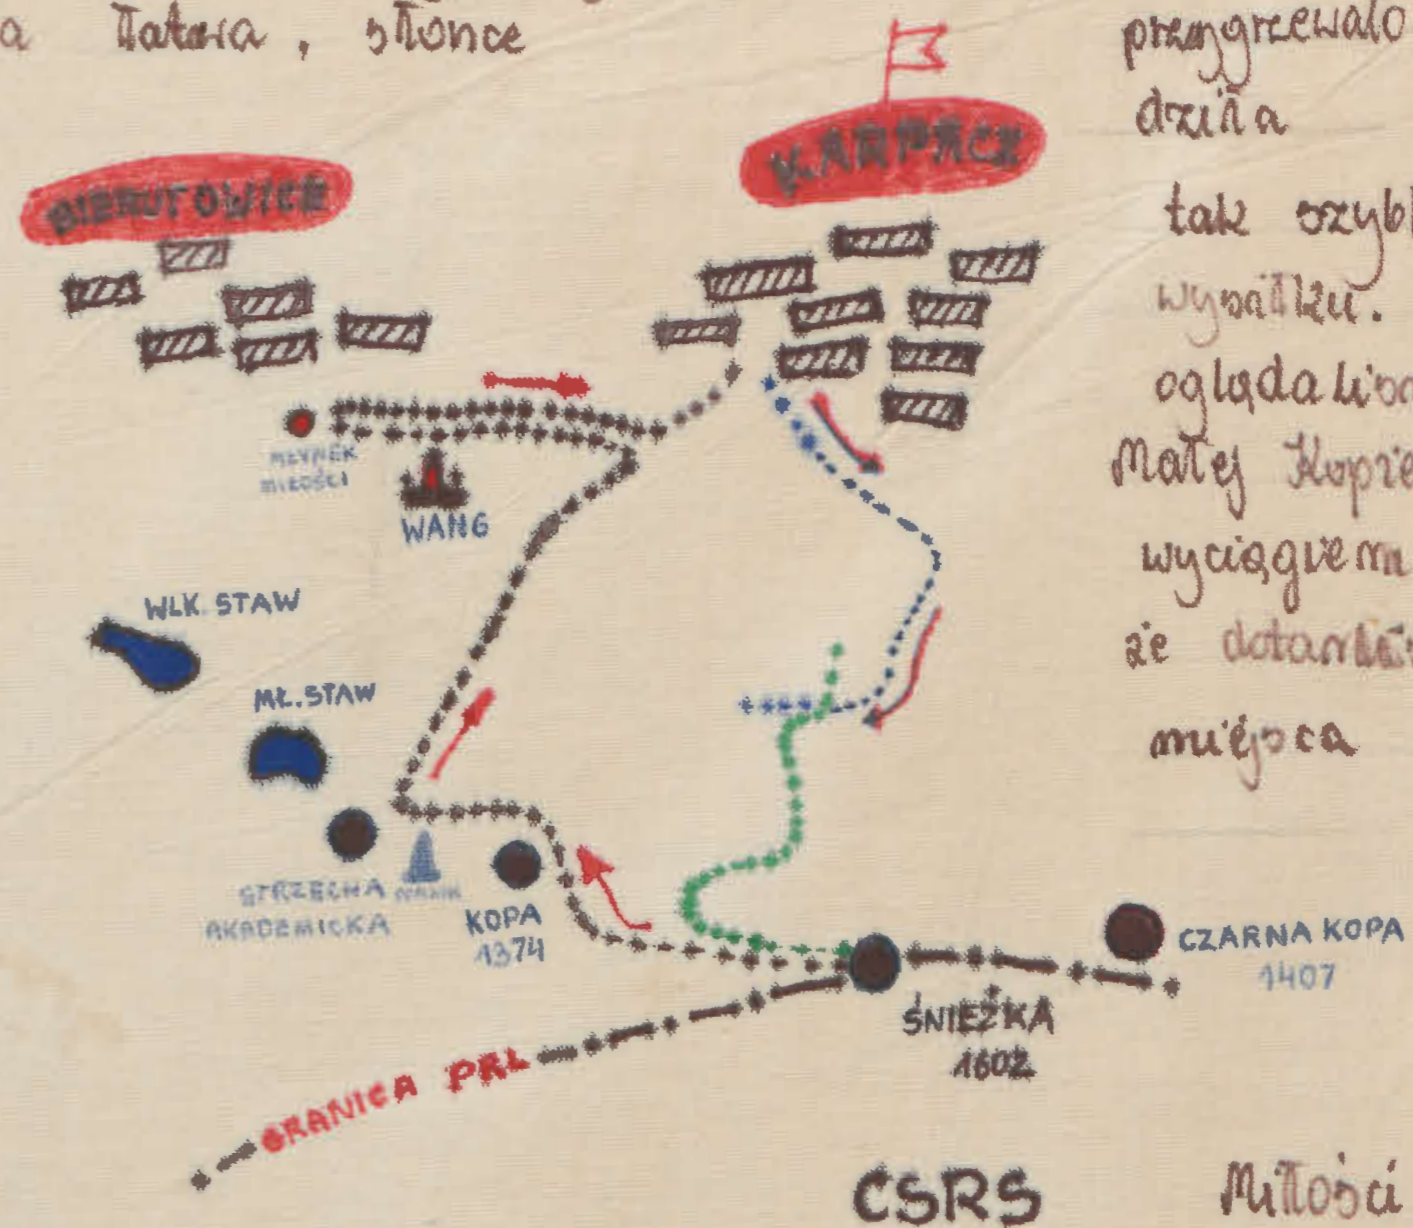 a łatwa, słońce
przygrzewało
dziła
tak szybk
wysiłku.
oglądaliśm
Małej Kopie
wyciągiem
że dotarliśm
miejsca
BIERUTOWICE
KARPACZ
MŁYNEK
MIŁOŚCI
WANG
WLK. STAW
MŁ. STAW
STRZECHA
AKADEMICKA
KOPA
1374
CZARNA KOPA
1407
ŚNIEŻKA
1602
GRANICA PRL
CSRS
Miłości